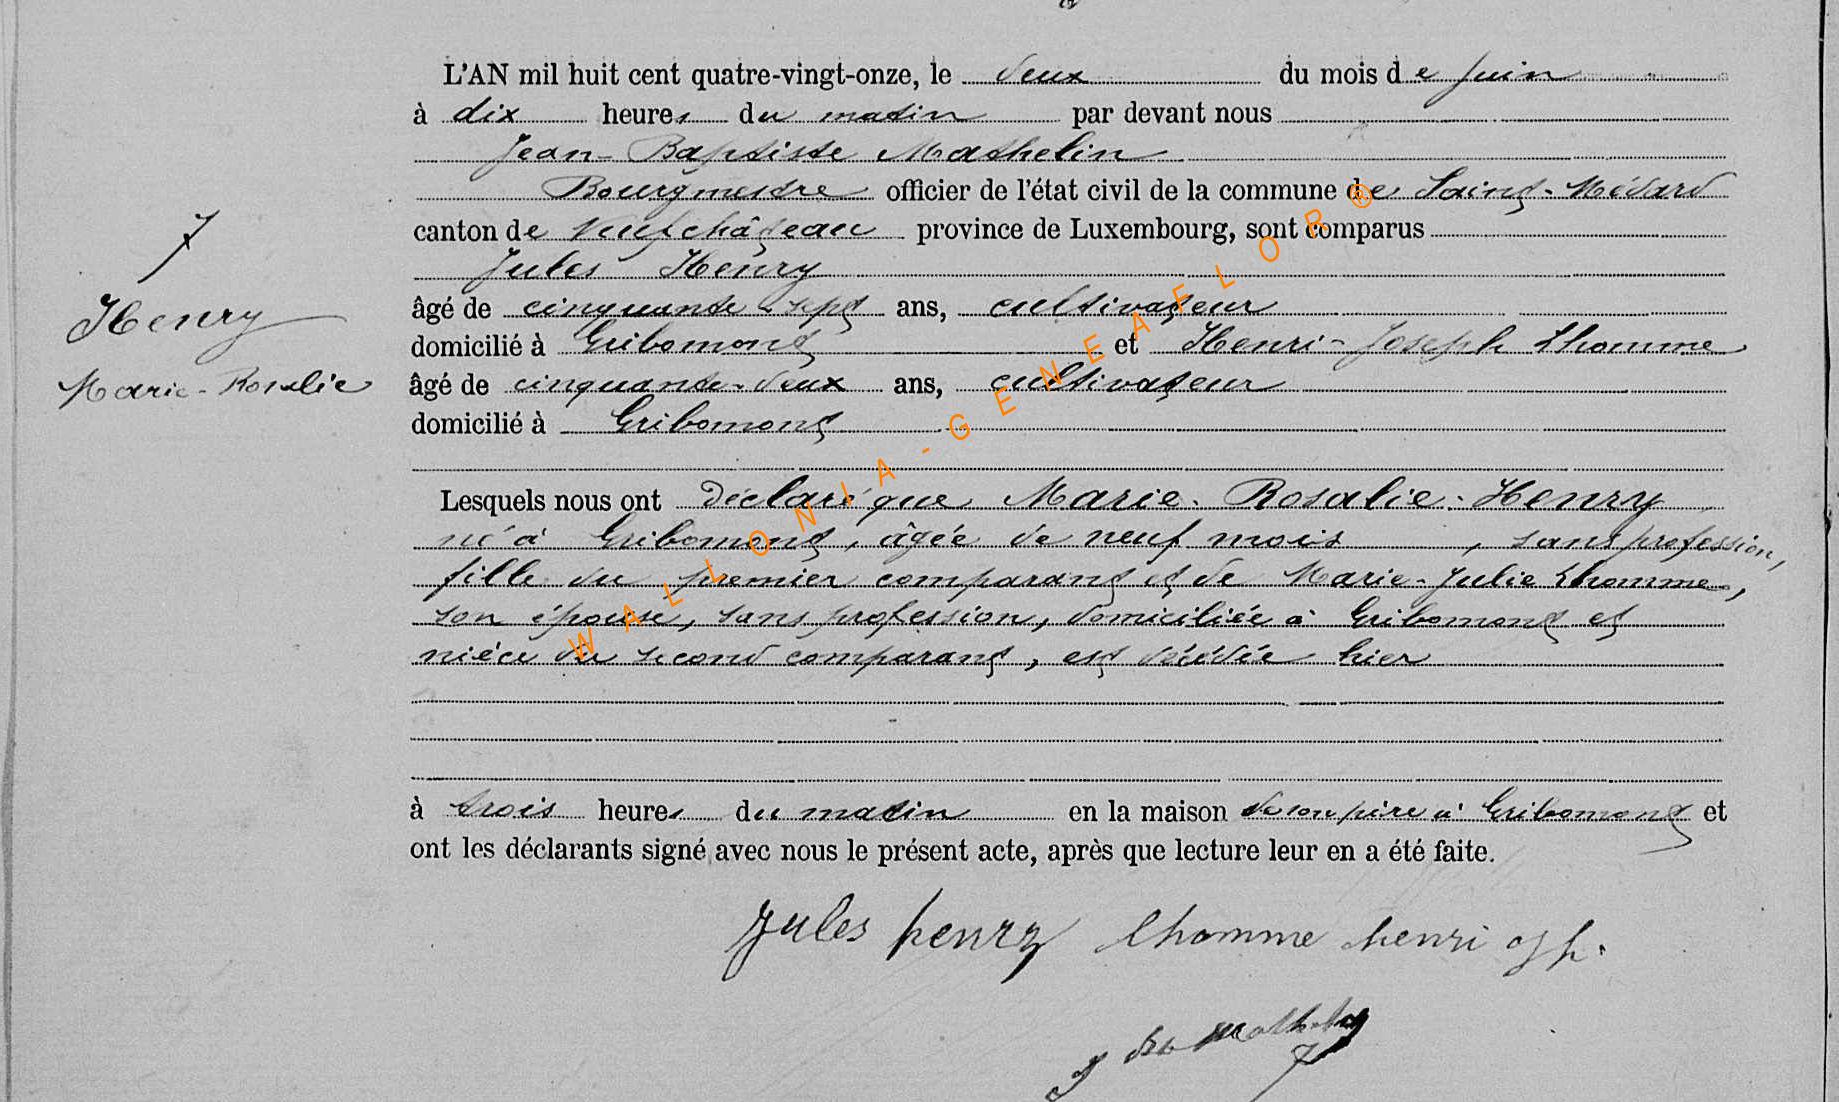 L'AN mil huit cent quatre-vingt-onze, le deux du mois de Juin
à dix heures du matin par devant nous
Jean-Baptiste Mathelin
Bourgmestre officier de l'état civil de la commune de Saint-Médard
canton de Neufchâteau province de Luxembourg, sont comparus
Jules Henry
âgé de cinquante sept ans, cultivateur
domicilié à Gribomont et Henri-Joseph Lhomme
âgé de cinquante-deux ans, cultivateur
domicilié à Gribomont
7
Henry
Marie-Rosalie
Lesquels nous ont déclaré que Marie-Rosalie Henry
né à Gribomont, âgée de neuf mois, sans profession,
fille du premier comparant et de Marie-Julie Lhomme,
son épouse, sans profession, domiciliée à Gribomont et
nièce du second comparant, est décédée hier
à trois heures du matin en la maison de son père à Gribomont et
ont les déclarants signé avec nous le présent acte, après que lecture leur en a été faite.
Jules henry lhomme henri
WALLONIA-GENEAFLOR®